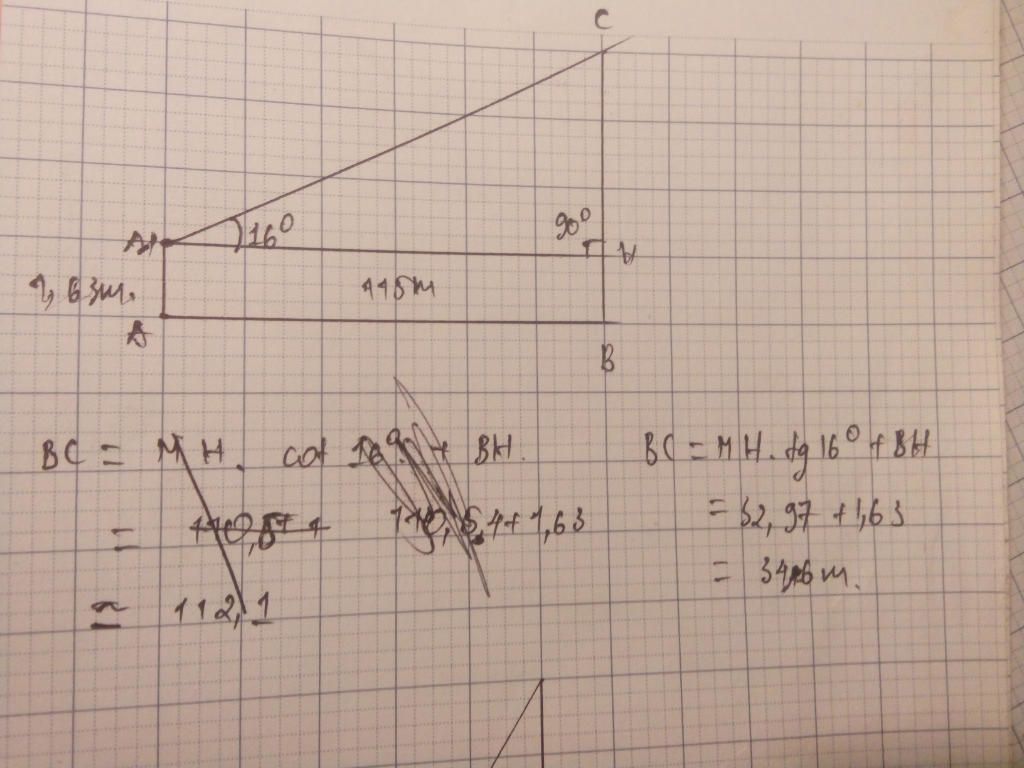 C
16°
90°
H
1,63m.
115m
A
B
BC = MH. cot + BH.
BC = MH. tg 16° + BH
= + 1,63
= 32,97 + 1,63
≈ 112,1
= 34,6 m.